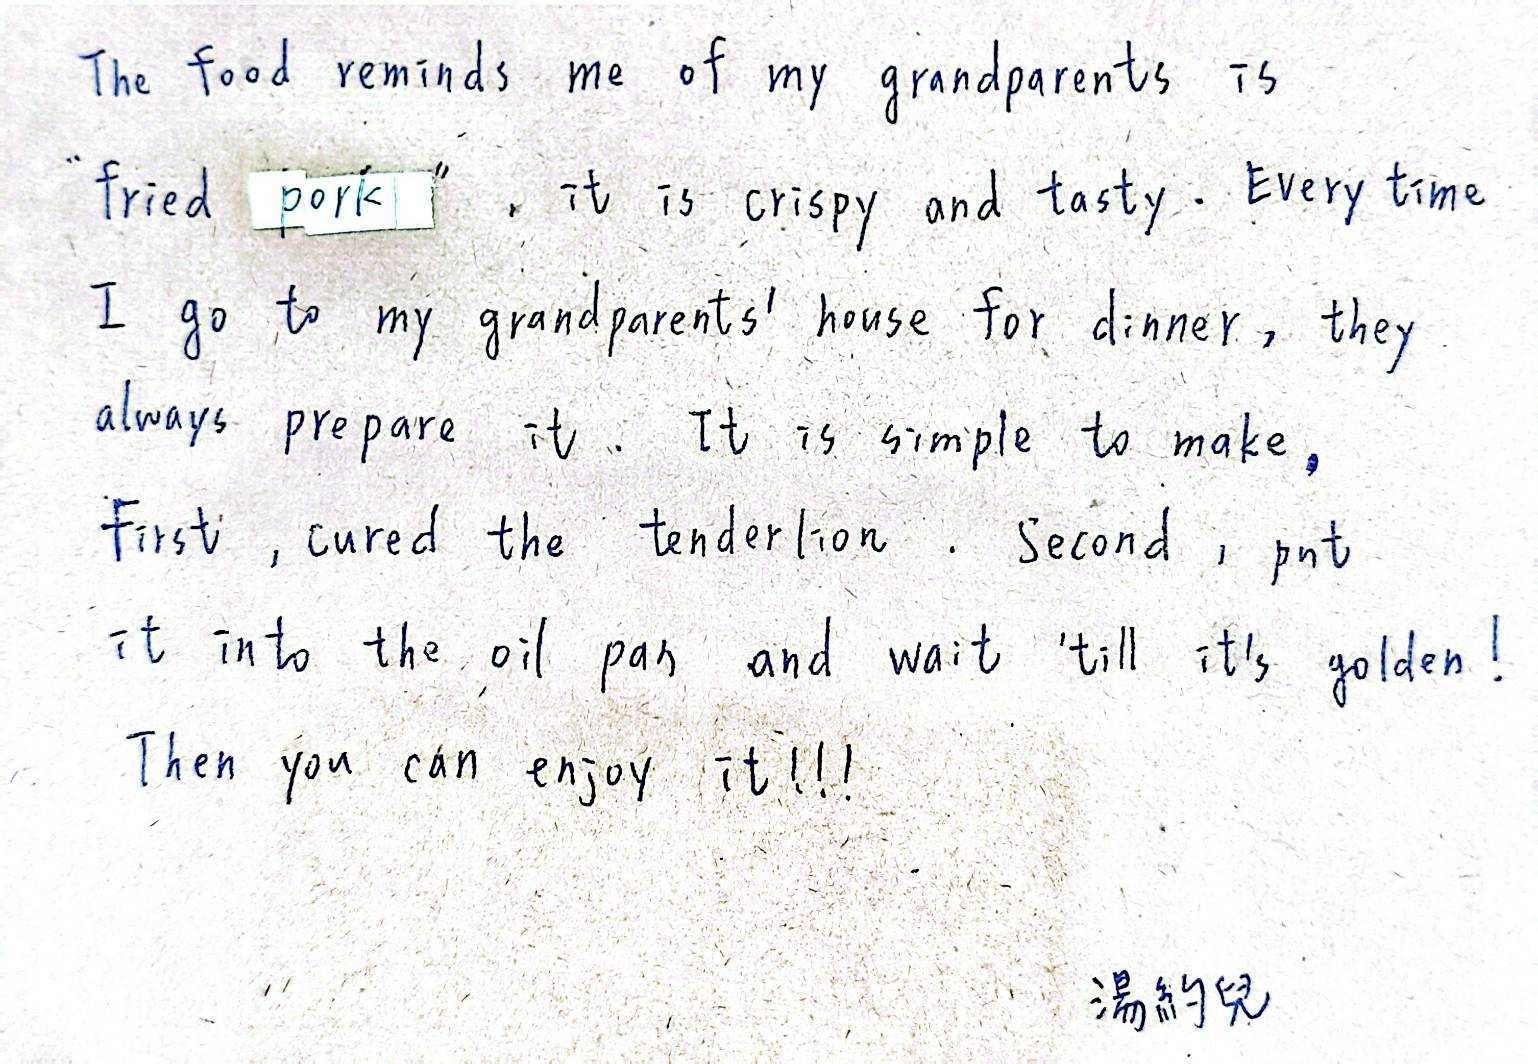 The food reminds me of my grandparents is
"fried pork", it is crispy and tasty. Every time
I go to my grandparents' house for dinner, they
always prepare it. It is simple to make,
First, cured the tenderlion. Second, put
it into the oil pan and wait 'till it's golden!
Then you can enjoy it!!!
湯約兒